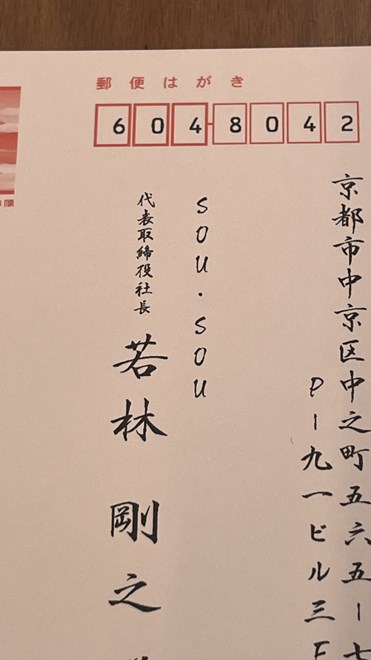 郵便はがき
604-8042
京都市中京区中之町五六五ー七
P-九一ビル三F
SOU・SOU
代表取締役社長
若林 剛之